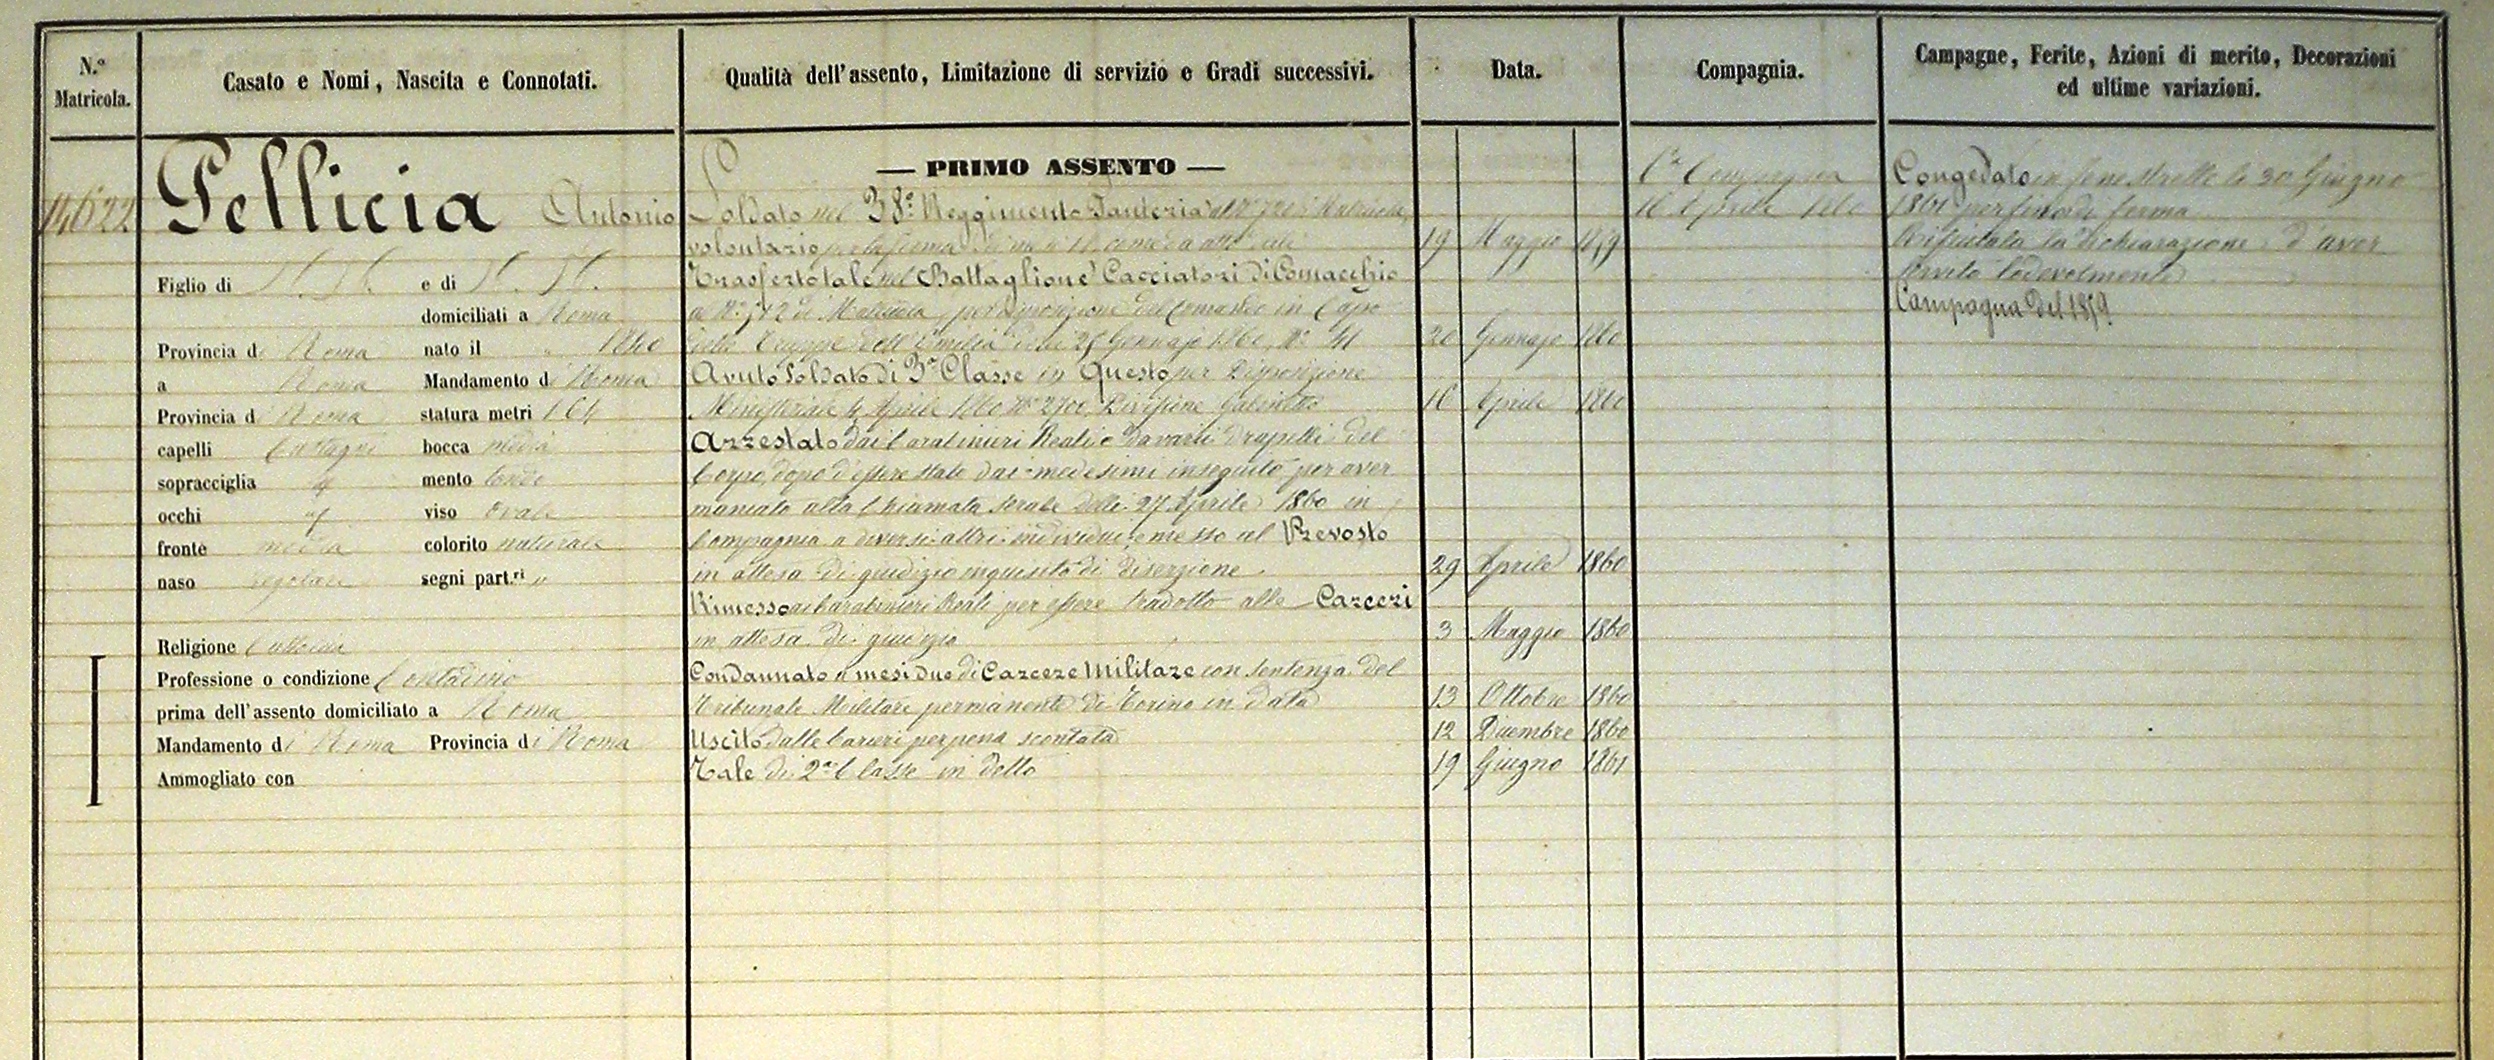 N.° Matricola.
Casato e Nomi, Nascita e Connotati.
Qualità dell'assento, Limitazione di servizio e Gradi successivi.
Data.
Compagnia.
Campagne, Ferite, Azioni di merito, Decorazioni
ed ultime variazioni.
14622
Pellicia Antonio
Figlio di N. N. e di N. N.
domiciliati a Roma
Provincia di Roma nato il " 1840
a Roma Mandamento di Roma
Provincia di Roma statura metri 1 64
capelli Castagni bocca media
sopracciglia mento tondo
occhi viso ovale
fronte media colorito naturale
naso regolare segni part.ri "
Religione Cattolica
Professione o condizione Contadino
prima dell'assento domiciliato a Roma
Mandamento di Roma Provincia di Roma
Ammogliato con
— PRIMO ASSENTO —
Soldato nel 38° Reggimento Fanteria al N°
volontario per la ferma 19 Maggio 1859
Trasferto tale nel Battaglione Cacciatori di Comacchio
a N° 512 di Matricola, per disposizione del Comando in Capo
delle Truppe dell'Emilia 25 Gennajo 1860, N° 41 20 Gennajo 1860
Avuto Soldato di 3a Classe in Questo per Disposizione
Ministeriale 4 Aprile 1860 N° 2700, Divisione Gabinetto 16 Aprile 1860
Arrestato dai Carabinieri Reali e da varii drapelli del
Corpo, dopo d'essere stato dai medesimi inseguito per aver
mancato alla Chiamata serale delli 27 Aprile 1860 in
Compagnia a diversi altri individui, e messo al Prevosto
in attesa di giudizio inquisito di diserzione 29 Aprile 1860
Rimesso ai Carabinieri Reali per essere tradotto alle Carceri
in attesa di giudizio 3 Maggio 1860
Condannato a mesi due di Carcere Militare con sentenza del
Tribunale Militare permanente di Torino in data 13 Ottobre 1860
Uscito dalle Carceri per pena scontata 12 Dicembre 1860
Tale di 2a Classe in detto 19 Giugno 1861
Compagnia
16 Aprile 1860
Congedato li 30 Giugno
1861 per fine di ferma
Rifiutata la dichiarazione d'aver
servito lodevolmente
Campagna del 1859